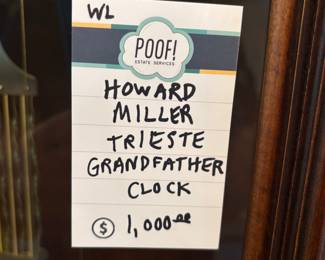 WL
POOF!
ESTATE SERVICES
HOWARD
MILLER
TRIESTE
GRANDFATHER
CLOCK
$ 1,000.00